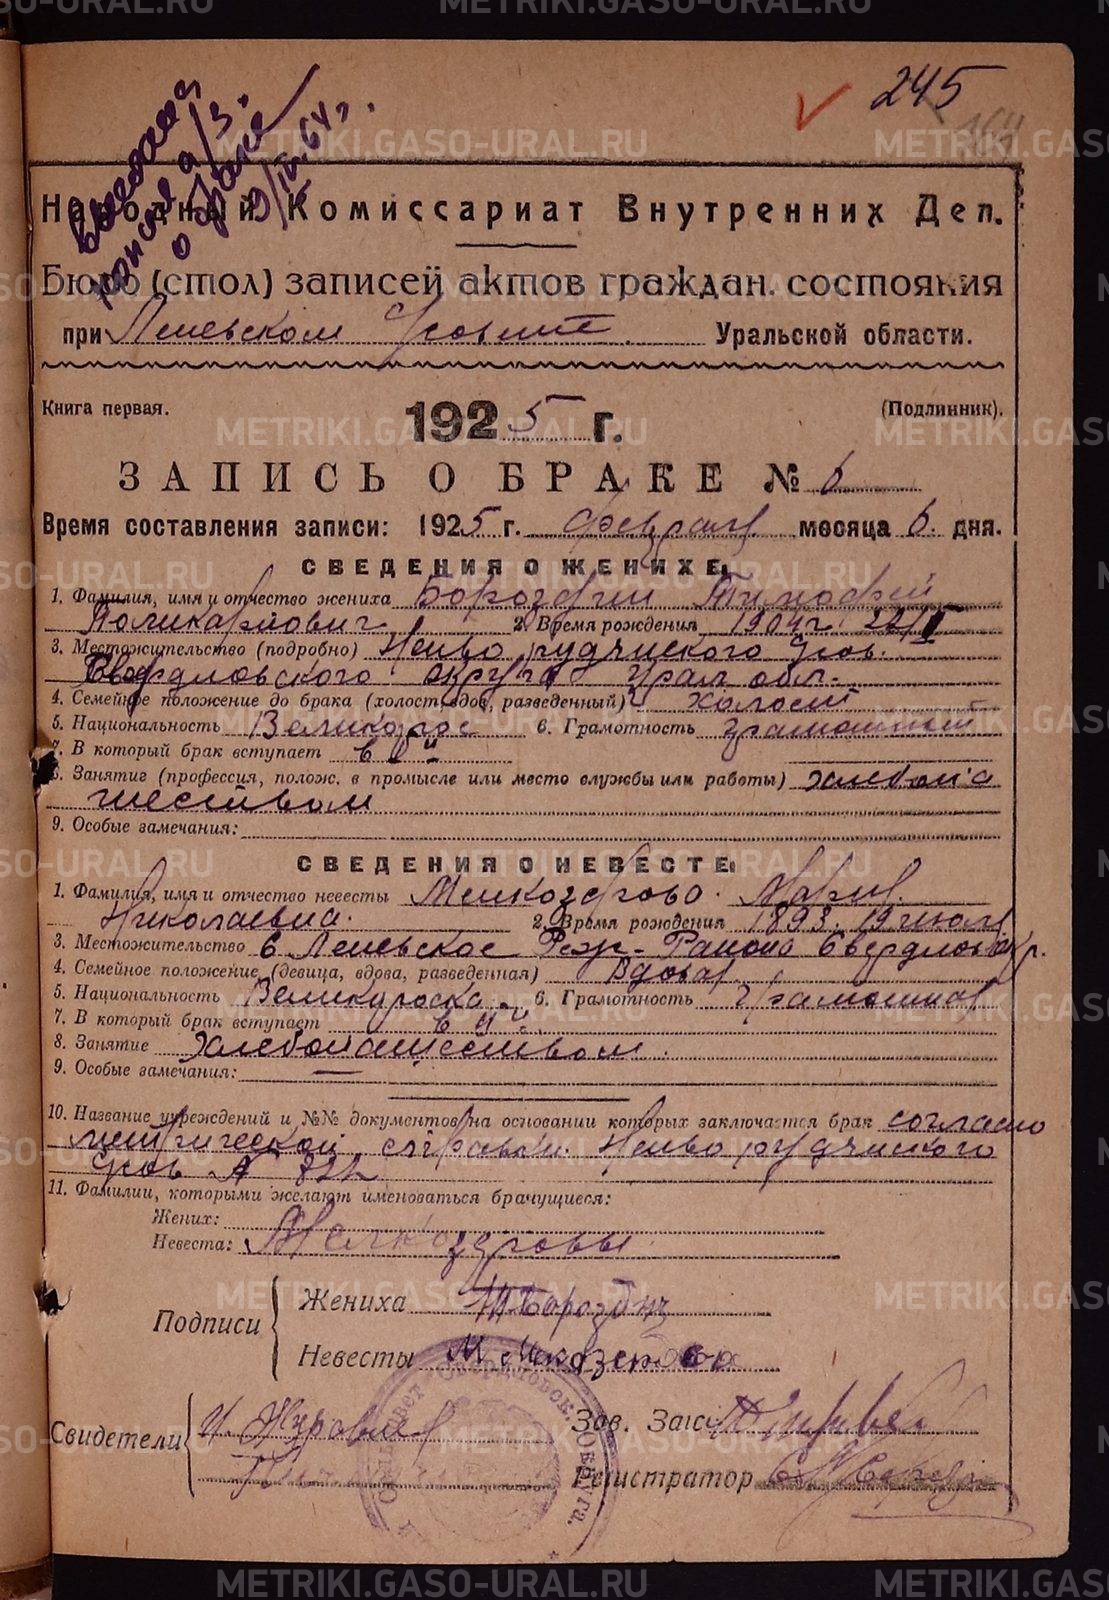 245
Выдана
повтор. с/в
о браке
9/IV-64г.
Народный Комиссариат Внутренних Дел.
Бюро (стол) записей актов граждан. состояния
при Леневском Сельсовете Уральской области.
Книга первая. 1925 г. (Подлинник).
ЗАПИСЬ О БРАКЕ № 6
Время составления записи: 1925 г. Февраля месяца 6 дня.
СВЕДЕНИЯ О ЖЕНИХЕ.
1. Фамилия, имя и отчество жениха Бороздин Тимофей
Поликарпович 2. Время рождения 1904 г. 22/II
3. Местожительство (подробно) Нейво Рудянского
Свердловского округа Урал обл.
4. Семейное положение до брака (холост, вдов, разведенный) холост
5. Национальность Великорос 6. Грамотность грамотный
7. В который брак вступает в 1й
8. Занятие (профессия, полож. в промысле или место службы или работы) хлебопа
шеством
9. Особые замечания:
СВЕДЕНИЯ О НЕВЕСТЕ:
1. Фамилия, имя и отчество невесты Мелкозерова Мария
Николаевна. 2. Время рождения 1893 19 июля
3. Местожительство в Леневское Реж- Района Свердловск окр.
4. Семейное положение (девица, вдова, разведенная) Вдова
5. Национальность Великоросска 6. Грамотность Грамотная
7. В который брак вступает
8. Занятие Хлебопашеством.
9. Особые замечания: —
10. Название учреждений и №№ документов, на основании которых заключается брак согласно
метрической справки Нейво рудянского
11. Фамилии, которыми желают именоваться брачущиеся:
Жених:
Невеста: Мелкозеровы
Подписи
Жениха Т Бороздин
Невесты М Мелкозерова
Свидетели
Зав. Загс
Регистратор
METRIKI.GASO-URAL.RU